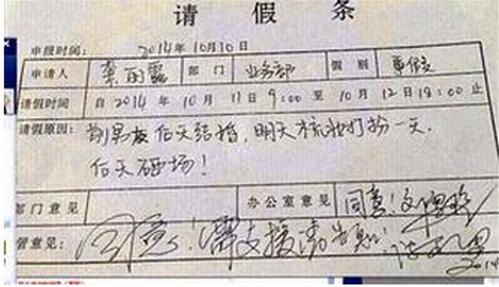 请假条
申报时间: 2014年10月10日
申请人 叶雨露 部门 业务部 假别 事假
请假时间 自2014年10月11日9:00至10月12日18:00止
请假原因: 前男友后天结婚,明天梳妆打扮一天.
后天砸场!
部门意见 办公室意见 同意!
管意见: 同意!需支援请告知!
2014